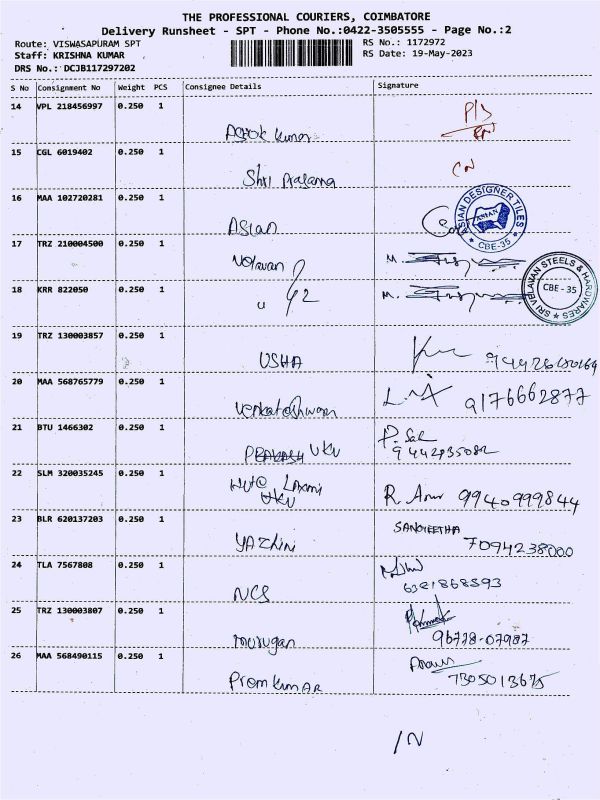 THE PROFESSIONAL COURIERS, COIMBATORE
Delivery Runsheet - SPT - Phone No.:0422-3505555 - Page No.:2
Route: VISWASAPURAM SPT
Staff: KRISHNA KUMAR
DRS No.: DCJB117297202
RS No.: 1172972
RS Date: 19-May-2023
S No Consignment No Weight PCS Consignee Details Signature
14 VPL 218456997 0.250 1
Ashok Kumar
15 CGL 6019402 0.250 1
Shri Prasanna CN
16 MAA 102720281 0.250 1
Asian
ASIAN DESIGNER TILES
ASIAN
CBE-35
17 TRZ 210004500 0.250 1
Velavan M.
18 KRR 822050 0.250 1
" 42 M.
SRI VELAVAN STEELS & HARDWARES
CBE - 35
19 TRZ 130003857 0.250 1
USHA
20 MAA 568765779 0.250 1
Venkateshwara 9176662877
21 BTU 1466302 0.250 1
UKU P. Sal
9442735082
22 SLM 320035245 0.250 1
Laxmi
UKU R. Arun 9940999844
23 BLR 620137203 0.250 1
Yazhini SANGEETHA
7094238000
24 TLA 7567808 0.250 1
NCS 6381868593
25 TRZ 130003807 0.250 1
murugan 96778-07987
26 MAA 568490115 0.250 1
Prem Kumar 7305013675
/N